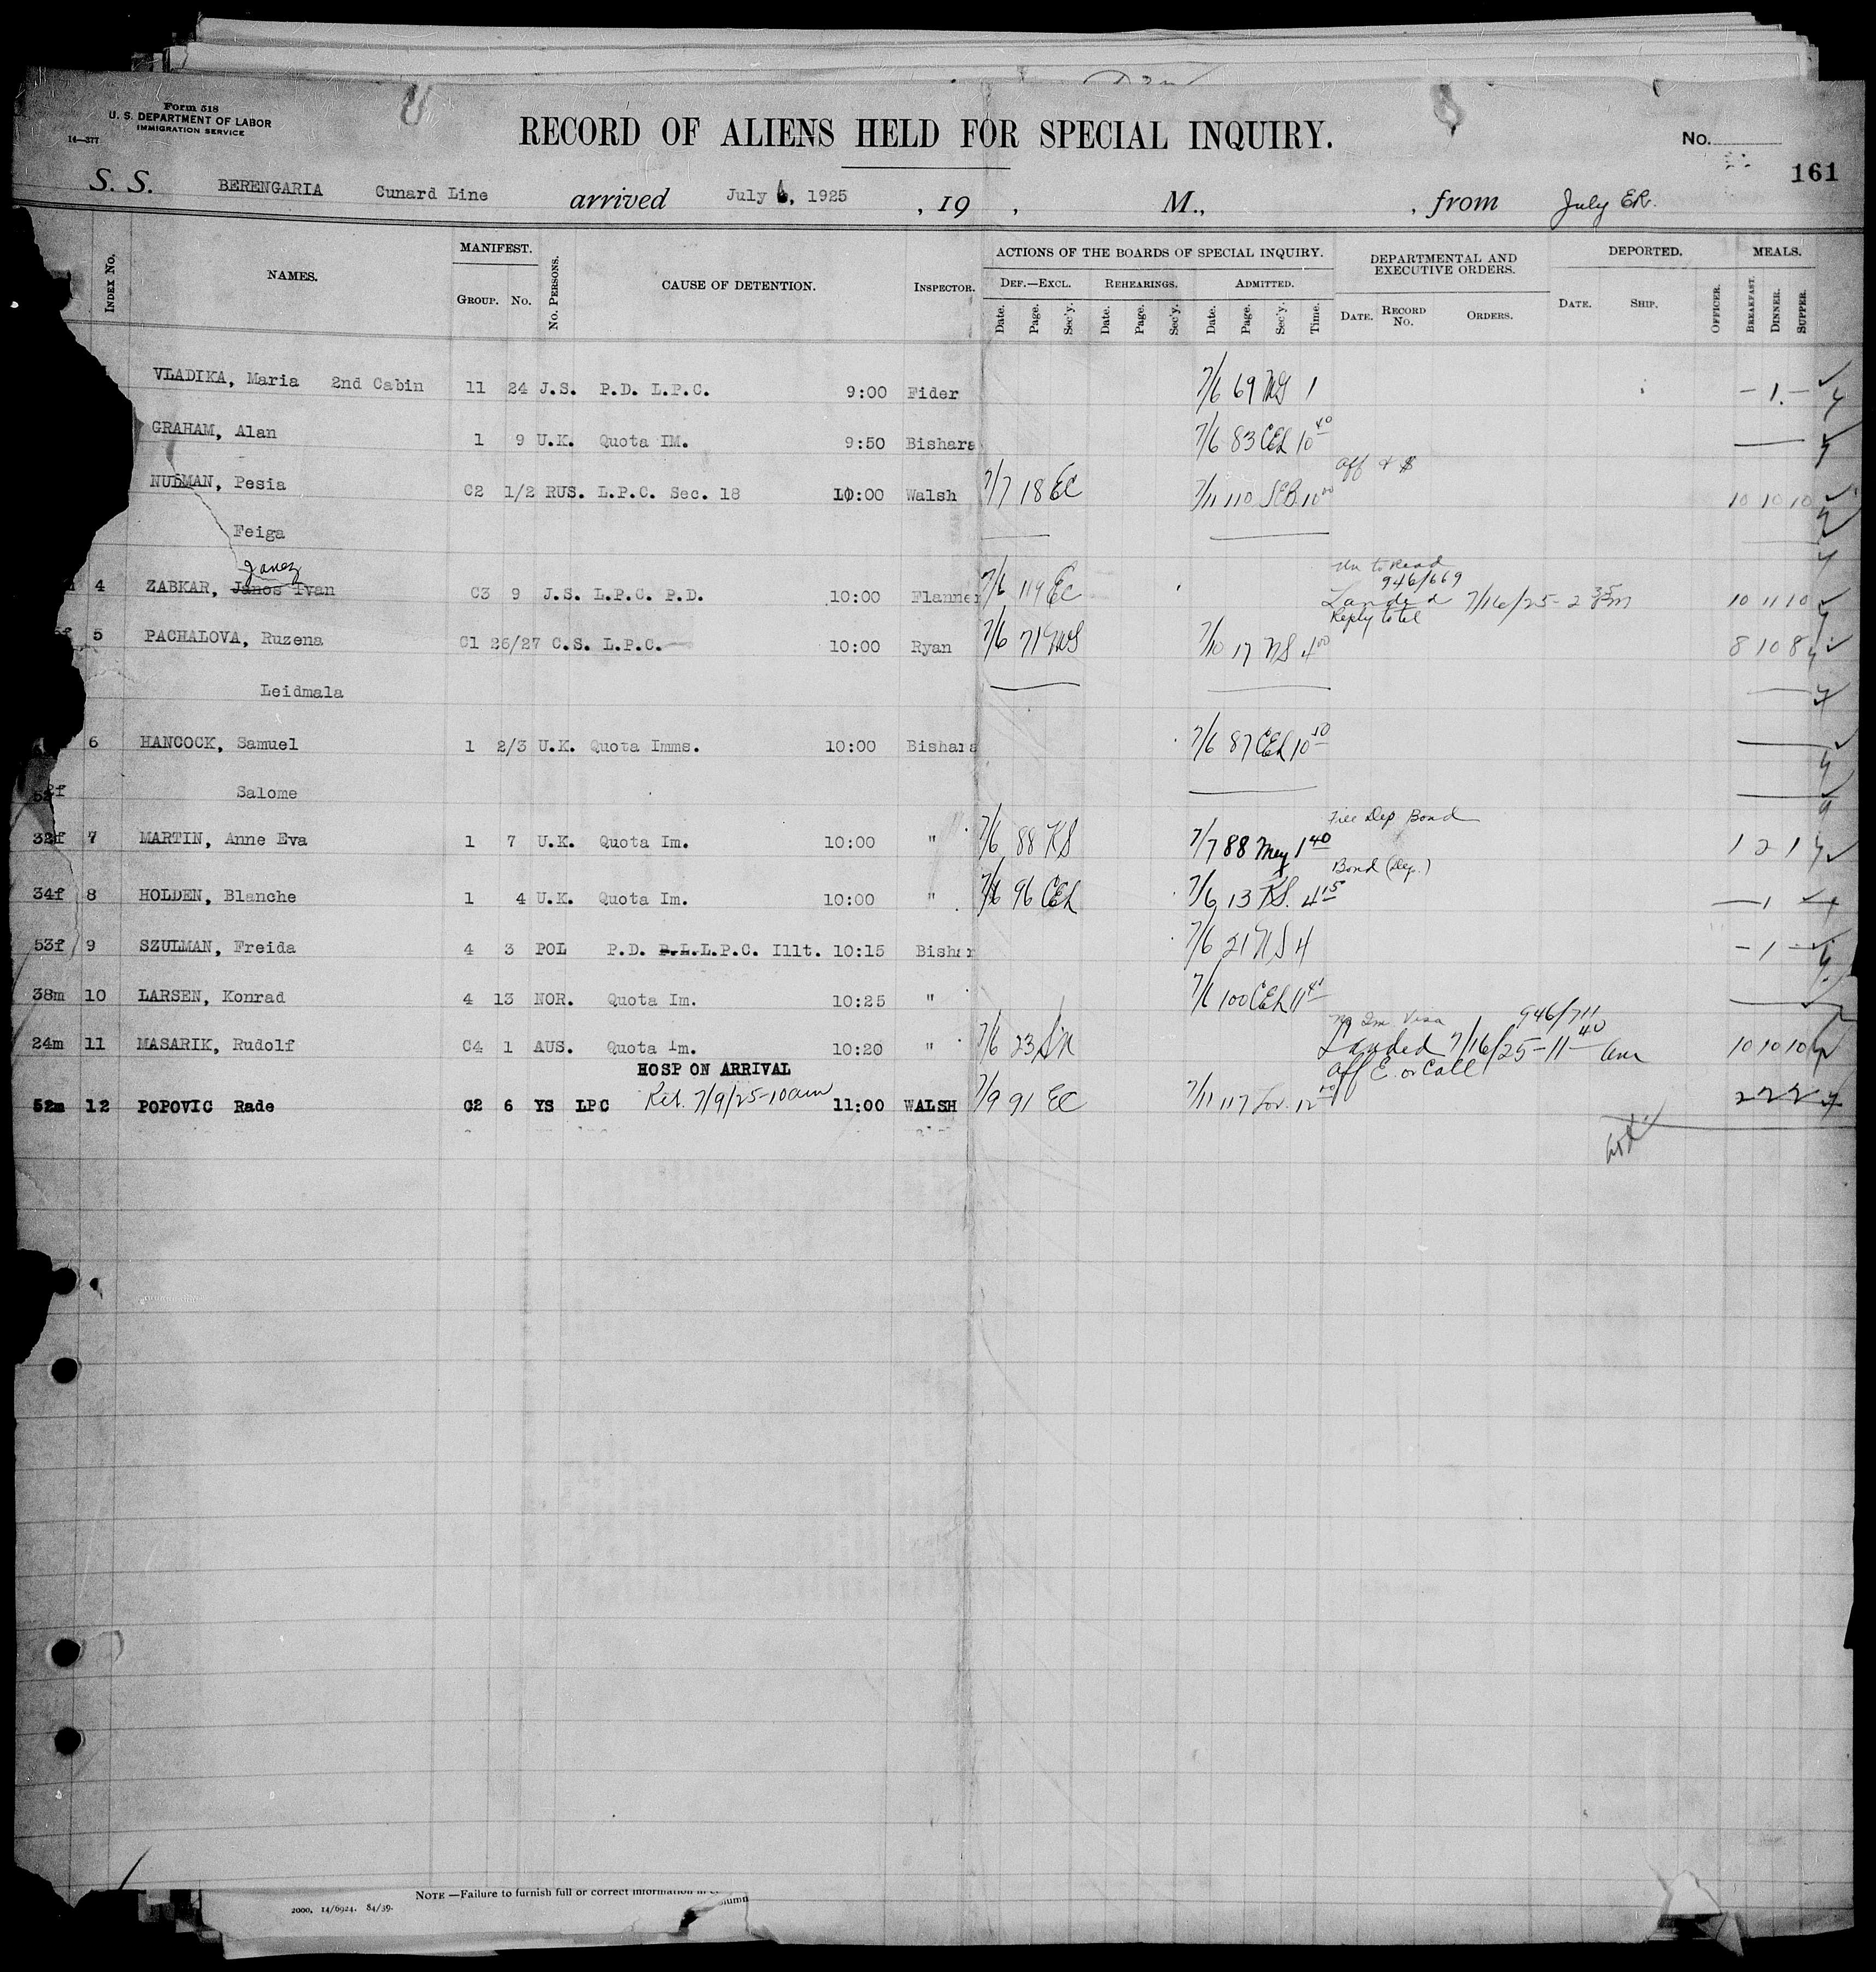 Form 518
U. S. DEPARTMENT OF LABOR
IMMIGRATION SERVICE
14—377
RECORD OF ALIENS HELD FOR SPECIAL INQUIRY.
No.
161
S. S. BERENGARIA Cunard Line arrived July 6, 1925, 19 , M., , from July ER.
Index No. NAMES. MANIFEST. Group. No. No. Persons. CAUSE OF DETENTION. Inspector. ACTIONS OF THE BOARDS OF SPECIAL INQUIRY. DEPARTMENTAL AND EXECUTIVE ORDERS. DEPORTED. MEALS.
Def.—Excl. Rehearings. Admitted.
Date. Page. Sec'y. Date. Page. Sec'y. Date. Page. Sec'y. Time. Date. Record No. Orders. Date. Ship. Officer. Breakfast. Dinner. Supper.
VLADIKA, Maria 2nd Cabin 11 24 J.S. P.D. L.P.C. 9:00 Fider 7/6 69 1 — 1. —
GRAHAM, Alan 1 9 U.K. Quota IM. 9:50 Bishara 7/6 83 CEL 10 40
Aff & $
NUDMAN, Pesia C2 1/2 RUS. L.P.C. Sec. 18 10:00 Walsh 7/7 18 EC 7/11 110 SEB 10 00 10 10 10
Feiga
Janez
Un to Read
946/669
4 ZABKAR, Janos Ivan C3 9 J.S. L.P.C. P.D. 10:00 Flanner 7/6 119 EC Landed 7/16/25- 2 35 PM 10 11 10
Reply to tel
5 PACHALOVA, Ruzena C1 26/27 C.S. L.P.C. 10:00 Ryan 7/6 71 MS 7/10 17 NS 4 00 8 10 8
Leidmala
6 HANCOCK, Samuel 1 2/3 U.K. Quota Imms. 10:00 Bishara 7/6 87 CEL 10 50
Salome
Free Dep Bond
32f 7 MARTIN, Anne Eva 1 7 U.K. Quota Im. 10:00 " 7/6 88 KS 7/7 88 Mey 1 40 1 2 1
Bond (Dep.)
34f 8 HOLDEN, Blanche 1 4 U.K. Quota Im. 10:00 " 7/6 96 CEL 7/6 13 KS. 4 15 — 1
53f 9 SZULMAN, Freida 4 3 POL P.D. P.L.L.P.C. Illt. 10:15 Bishar 7/6 21 NS 4 — 1 —
38m 10 LARSEN, Konrad 4 13 NOR. Quota Im. 10:25 " 7/6 100 CEL 11 41
No Im. Visa 946/711
24m 11 MASARIK, Rudolf C4 1 AUS. Quota Im. 10:20 " 7/6 23 Landed 7/16/25-11 40 am 10 10 10
HOSP ON ARRIVAL
Aff E. or Call
52m 12 POPOVIC Rade C2 6 YS LPC Ret. 7/9/25-10am 11:00 WALSH 7/9 91 EC 7/11 117 12 2 2 2
NOTE —Failure to furnish full or correct information in
2000. 14/6924. 84/39.